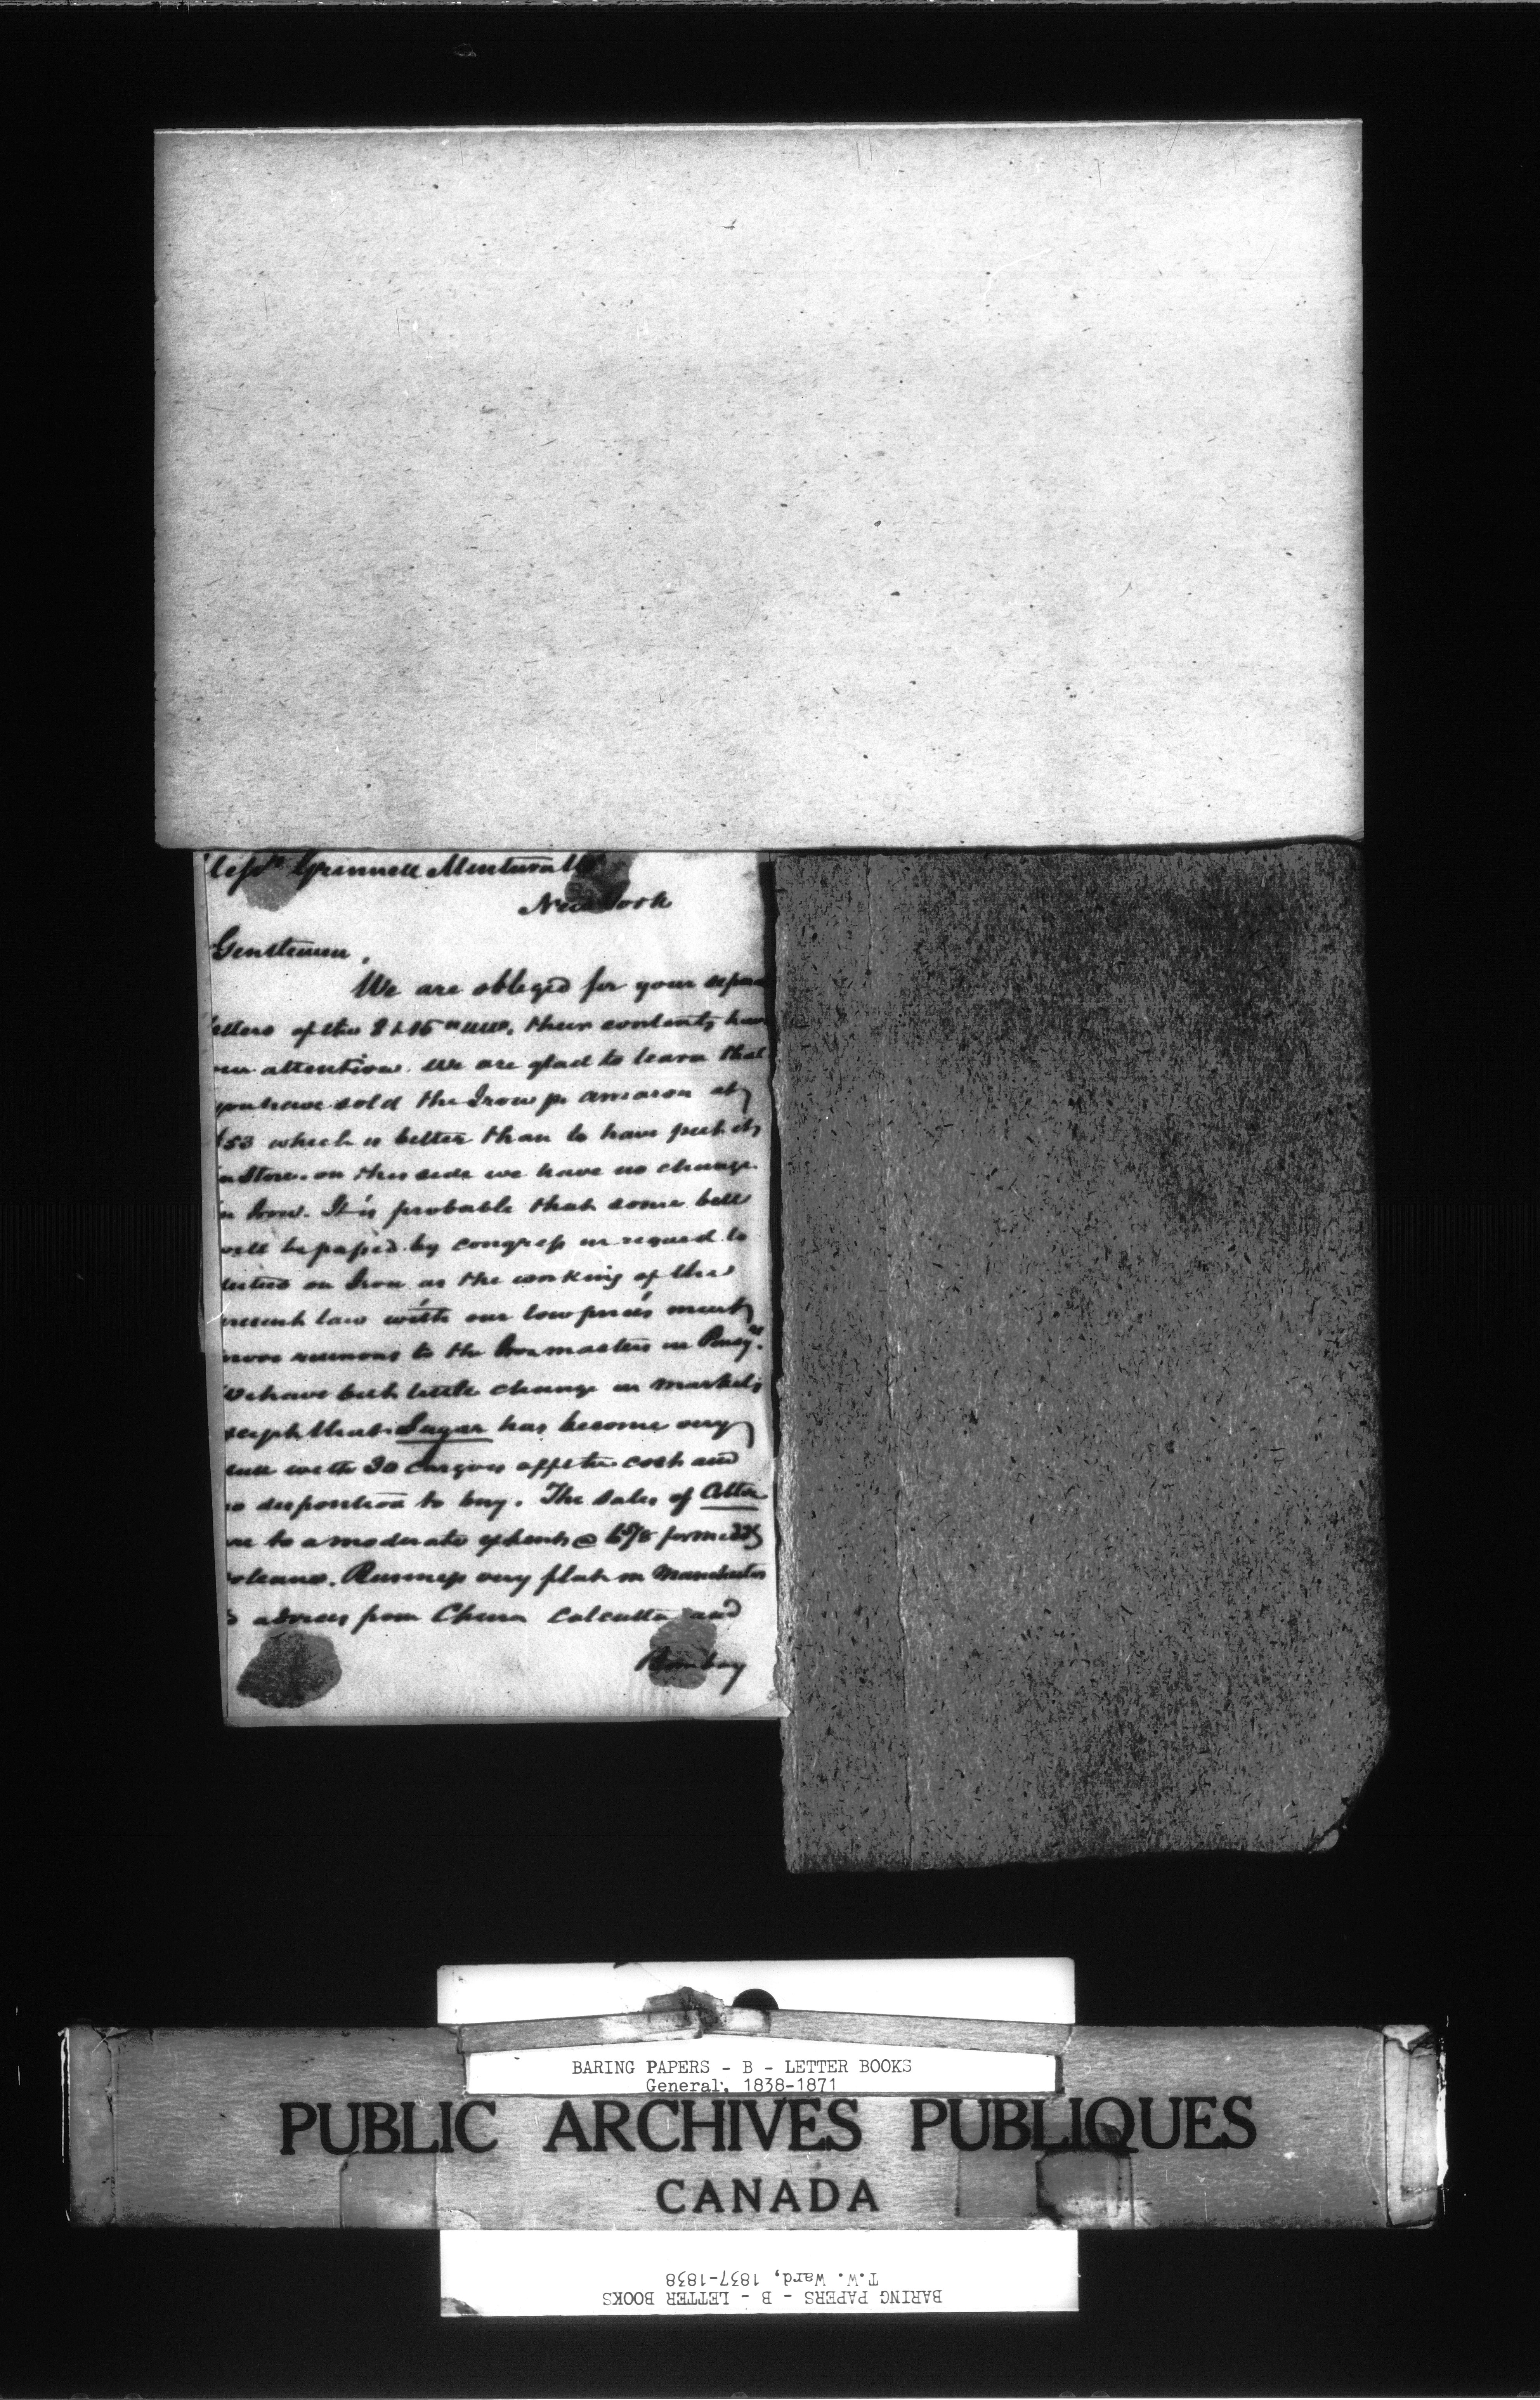 Messrs Grinnell Minturn & Co
New York
Gentlemen,
We are obliged for your
letters of the 8 & 15 their contents have
our attention. We are glad to learn that
you have sold the Iron pr at
$53 which is better than to have put it
in Store. on this side we have no change
in Iron. It is probable that some bill
will be passed by congress in regard to
duties on Iron as the working of the
present law with our low prices must
prove ruinous to the Iron masters in
We have but little change in markets
except that Sugar has become very
dull with 30 cargoes off the coast and
no disposition to buy. The sales of Cotton
are to a moderate extent @ for
Orleans. Business very flat in Manchester
advices from China Calcutta and
Bombay
BARING PAPERS - B - LETTER BOOKS
General, 1838-1871
PUBLIC ARCHIVES PUBLIQUES
CANADA
BARING PAPERS - B - LETTER BOOKS
T.W. Ward, 1837-1838